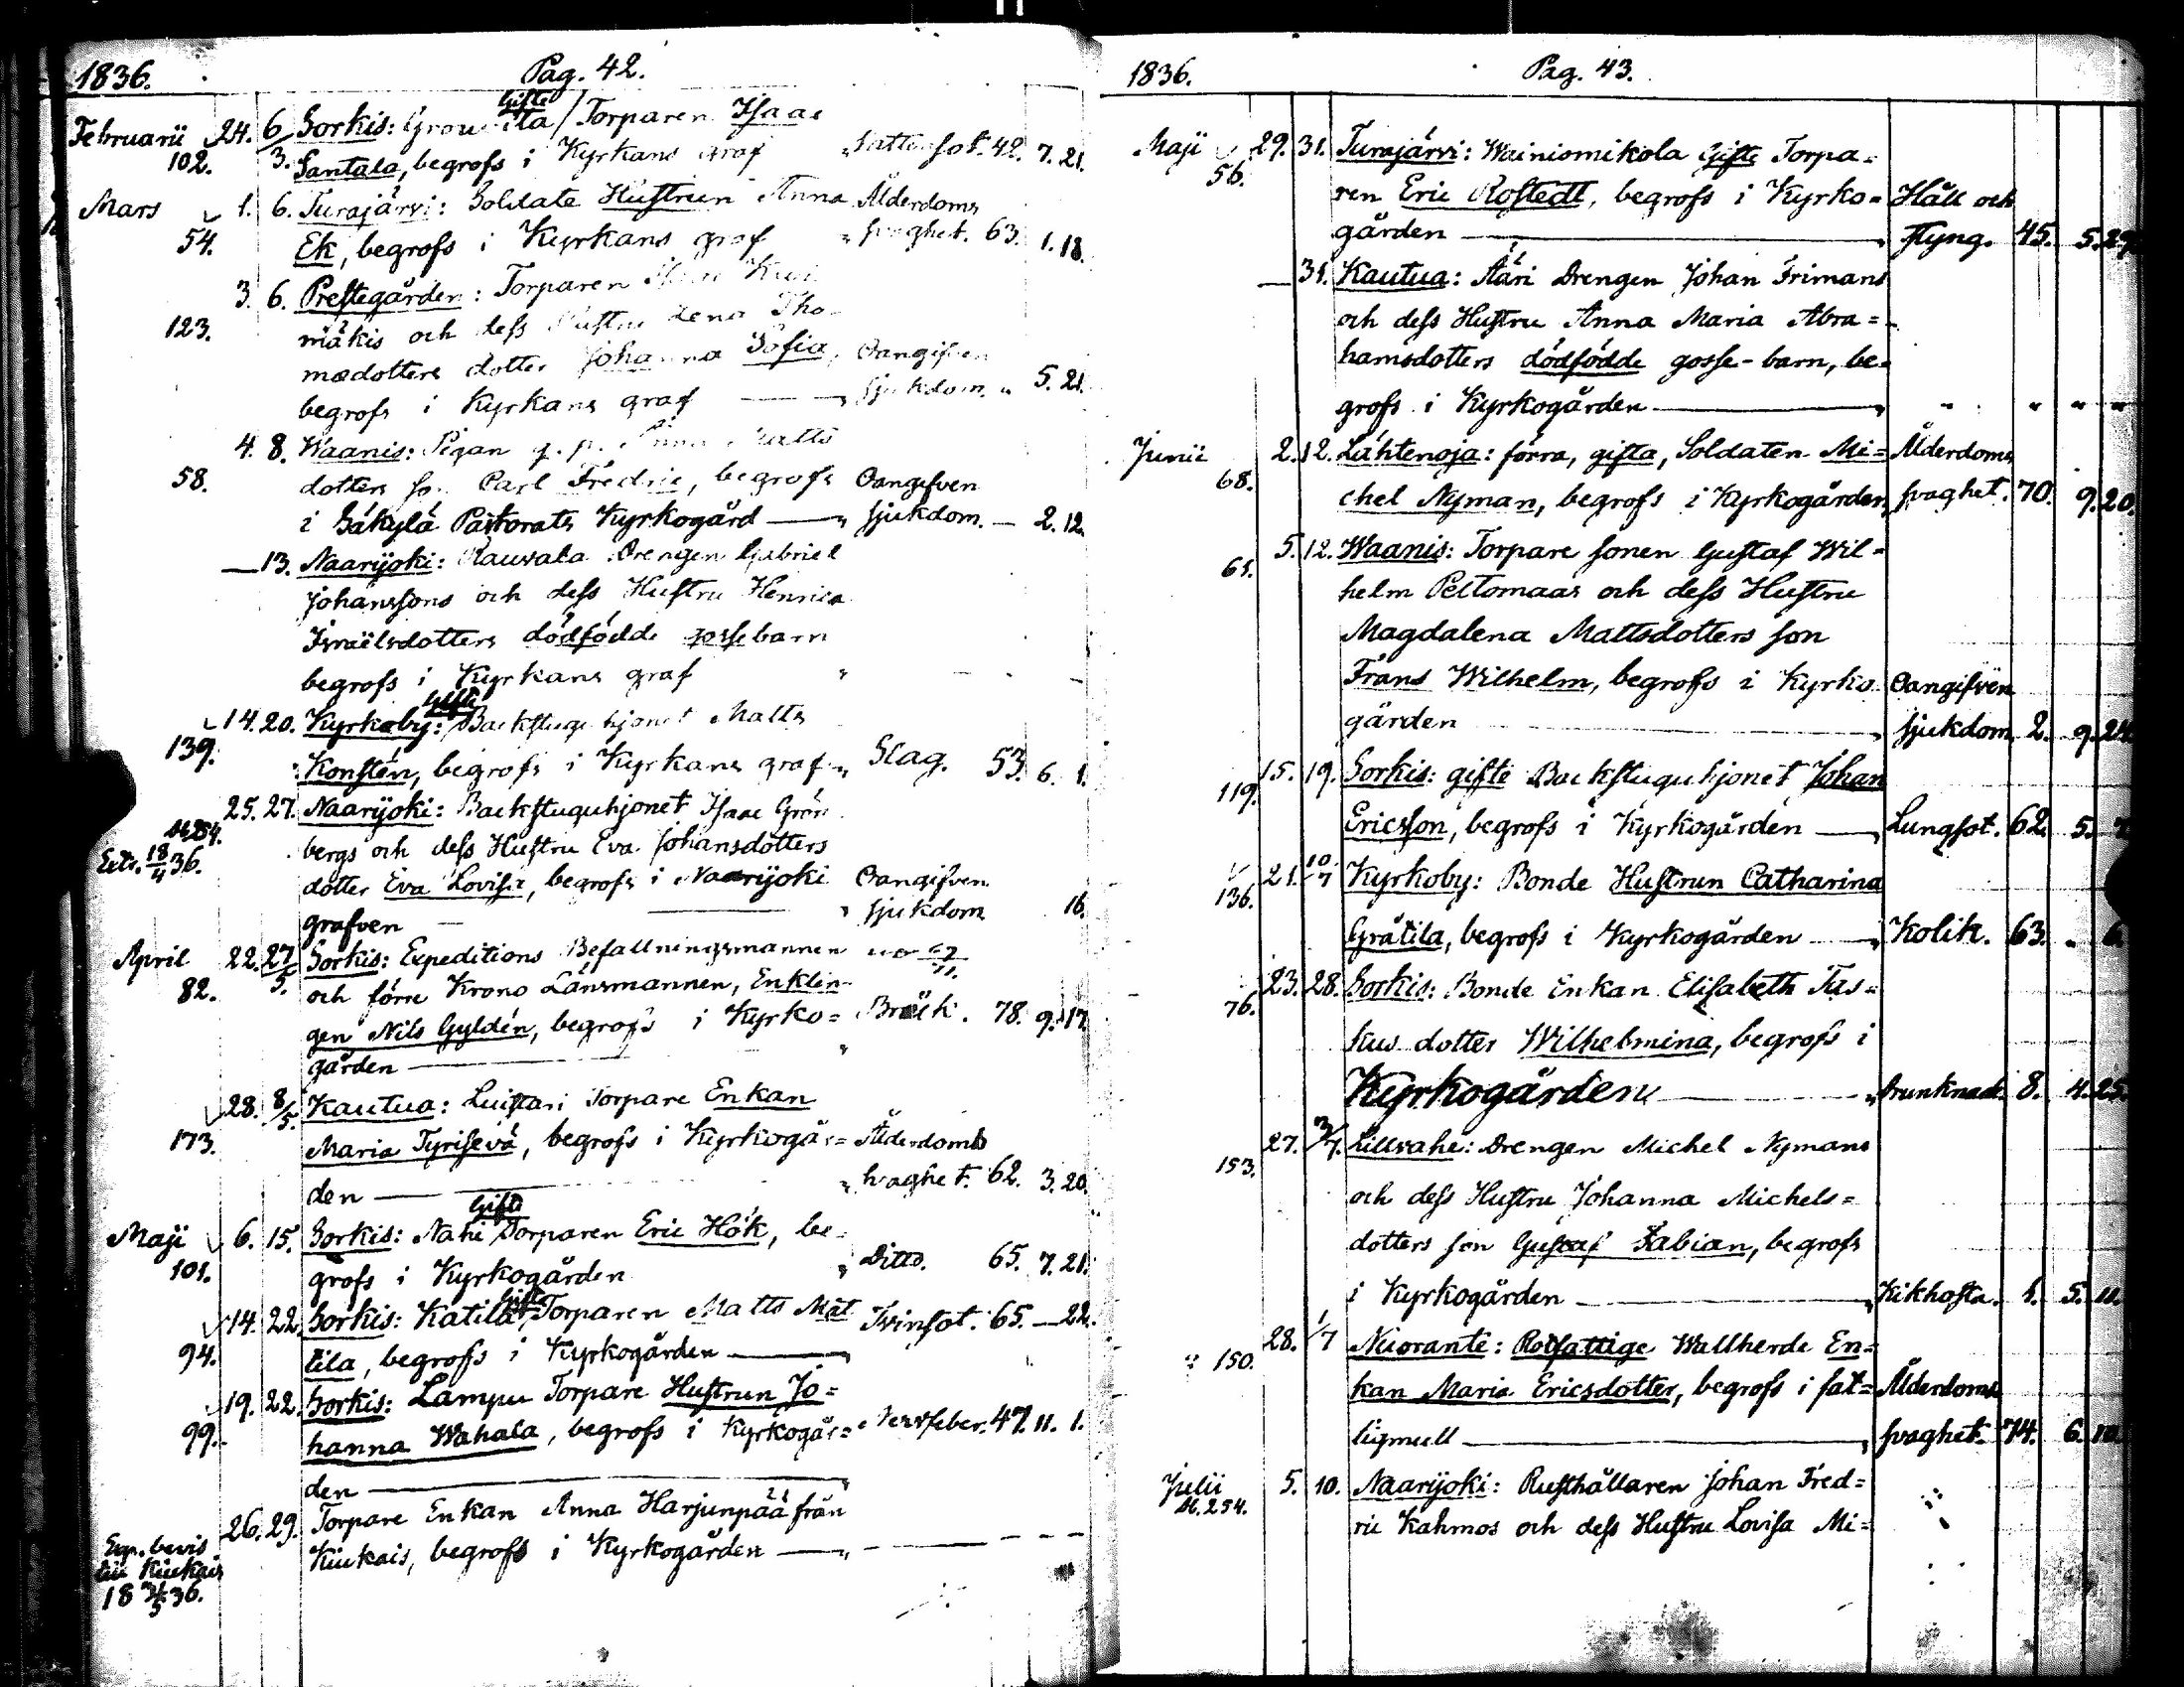 1836. Pag. 42.
Gifte
Februarii 24. 6 Sorkis: Torparen Isaac
102. 3. Santala, begrofs i Kyrkans graf Vattensot. 42. 7. 21.
Mars 1. 6. Turajärvi: Soldats Hustrun Anna Ålderdoms
54. Ek, begrofs i Kyrkans graf svaghet. 63. 1. 18.
3. 6. Prestegården: Torparen
123. mäkis och dess Hustru Lena Tho-
madotters dotter Johanna Sofia, Oangifven
begrofs i Kyrkans graf — sjukdom. " 5. 21.
4. 8. Waanis: Pigan Anna Matts
58. dotters so. Carl Fredric, begrofs Oangifven
i Säkylä Pastorats Kyrkogård — sjukdom. — 2. 12.
— 13. Naarijoki: Rauvala Drengen Gabriel
Johanssons och dess Hustru Henrica
Israëlsdotters dödfödde gossebarn
begrofs i Kyrkans graf
Gifte
14. 20. Kyrkoby: Backstuguhjonet Matts
139. Konstén, begrofs i Kyrkans graf Slag. 53. 6. 1.
25. 27. Naarijoki: Backstuguhjonet Isaac Grön
M. 254. bergs och dess Hustru Eva Johansdotters
Extr. 18/4 36. dotter Eva Lovisa, begrofs i Naarijoki Oangifven
grafven — sjukdom 16.
April 22. 27/5. Sorkis: Expeditions Befallningsmannen
82. och förre Krono Länsmannen, Enklin-
gen Nils Gyldén, begrofs i Kyrko= Bråck. 78. 9. 17.
gården —
28. 8/5. Kautua: Luistari Torpare Enkan
173. Maria Tyrisevä, begrofs i Kyrkogår= Ålderdoms
den — svaghet. 62. 3. 20.
Gifte
Maji 6. 15. Sorkis: Nahi Torparen Eric Hök, be-
101. grofs i Kyrkogården Ditto. 65. 7. 21.
Gifte
14. 22. Sorkis: Katila Torparen Matts Mat
94. tila, begrofs i Kyrkogården — Tvinsot. 65. — 22.
19. 22. Sorkis: Lampu Torpare Hustrun Jo=
99. hanna Wahala, begrofs i Kyrkogår= Nervfeber. 47. 11. 1.
den —
26. 29. Torpare Enkan Anna Harjunpää från
Exp. bevis Kiukais, begrofs i Kyrkogården — " — — —
till Kiukais
18 31/5 36.
1836. Pag. 43.
Maji 29. 31. Turajärvi: Wainiomikola Gifte Torpa=
56. ren Eric Rostedt, begrofs i Kyrko= Håll och
gården — Styng. 45. 5. 29.
— 31. Kautua: Ääri Drengen Johan Frimans
och dess Hustru Anna Maria Abra=
hamsdotters dödfödde gosse-barn, be=
grofs i Kyrkogården — " " " "
Junii 2. 12. Lähtenoja: förra, gifta, Soldaten Mi= Ålderdoms
68. chel Nyman, begrofs i Kyrkogården, svaghet. 70. 9. 20.
5. 12. Waanis: Torpare sonen Gustaf Wil=
61. helm Peltomaas och dess Hustru
Magdalena Mattsdotters son
Frans Wilhelm, begrofs i Kyrko Oangifven
gården — sjukdom. 2. 9. 24.
15. 19. Sorkis: gifte Backstuguhjonet Johan
119. Ericsson, begrofs i Kyrkogården — Lungsot. 62. 5. 7.
21. 10/7 Kyrkoby: Bonde Hustrun Catharina
136. Gråtila, begrofs i Kyrkogården — Kolik. 63. " 6.
23. 28. Sorkis: Bonde Enkan Elisabeth Tas=
76. kus dotter Wilhelmina, begrofs i
Kyrkogården — Drunknad. 8. 4. 25.
27. 3/7. Lillvahe: Drengen Michel Nymans
153. och dess Hustru Johanna Michels=
dotters son Gustaf Fabian, begrofs
i Kyrkogården — Kikhosta. 1. 5. 11.
28. 1/7 Neiorante: Rotfattige Wallherde En=
150. kan Maria Ericsdotter, begrofs i fat= Ålderdoms
tigmull — svaghet. 74. 6. 10.
Julii 5. 10. Naarijoki: Rusthållaren Johan Fred=
M. 254. ric Kahmos och dess Hustru Lovisa Mi=